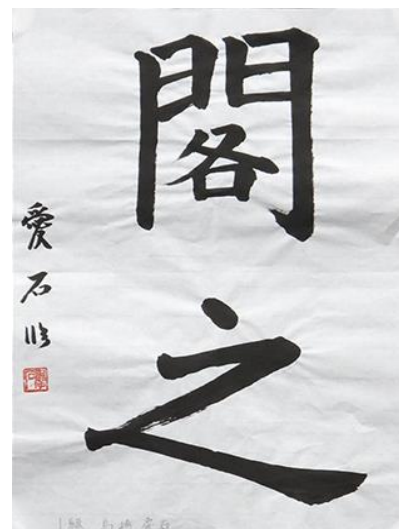 閣之
愛石臨